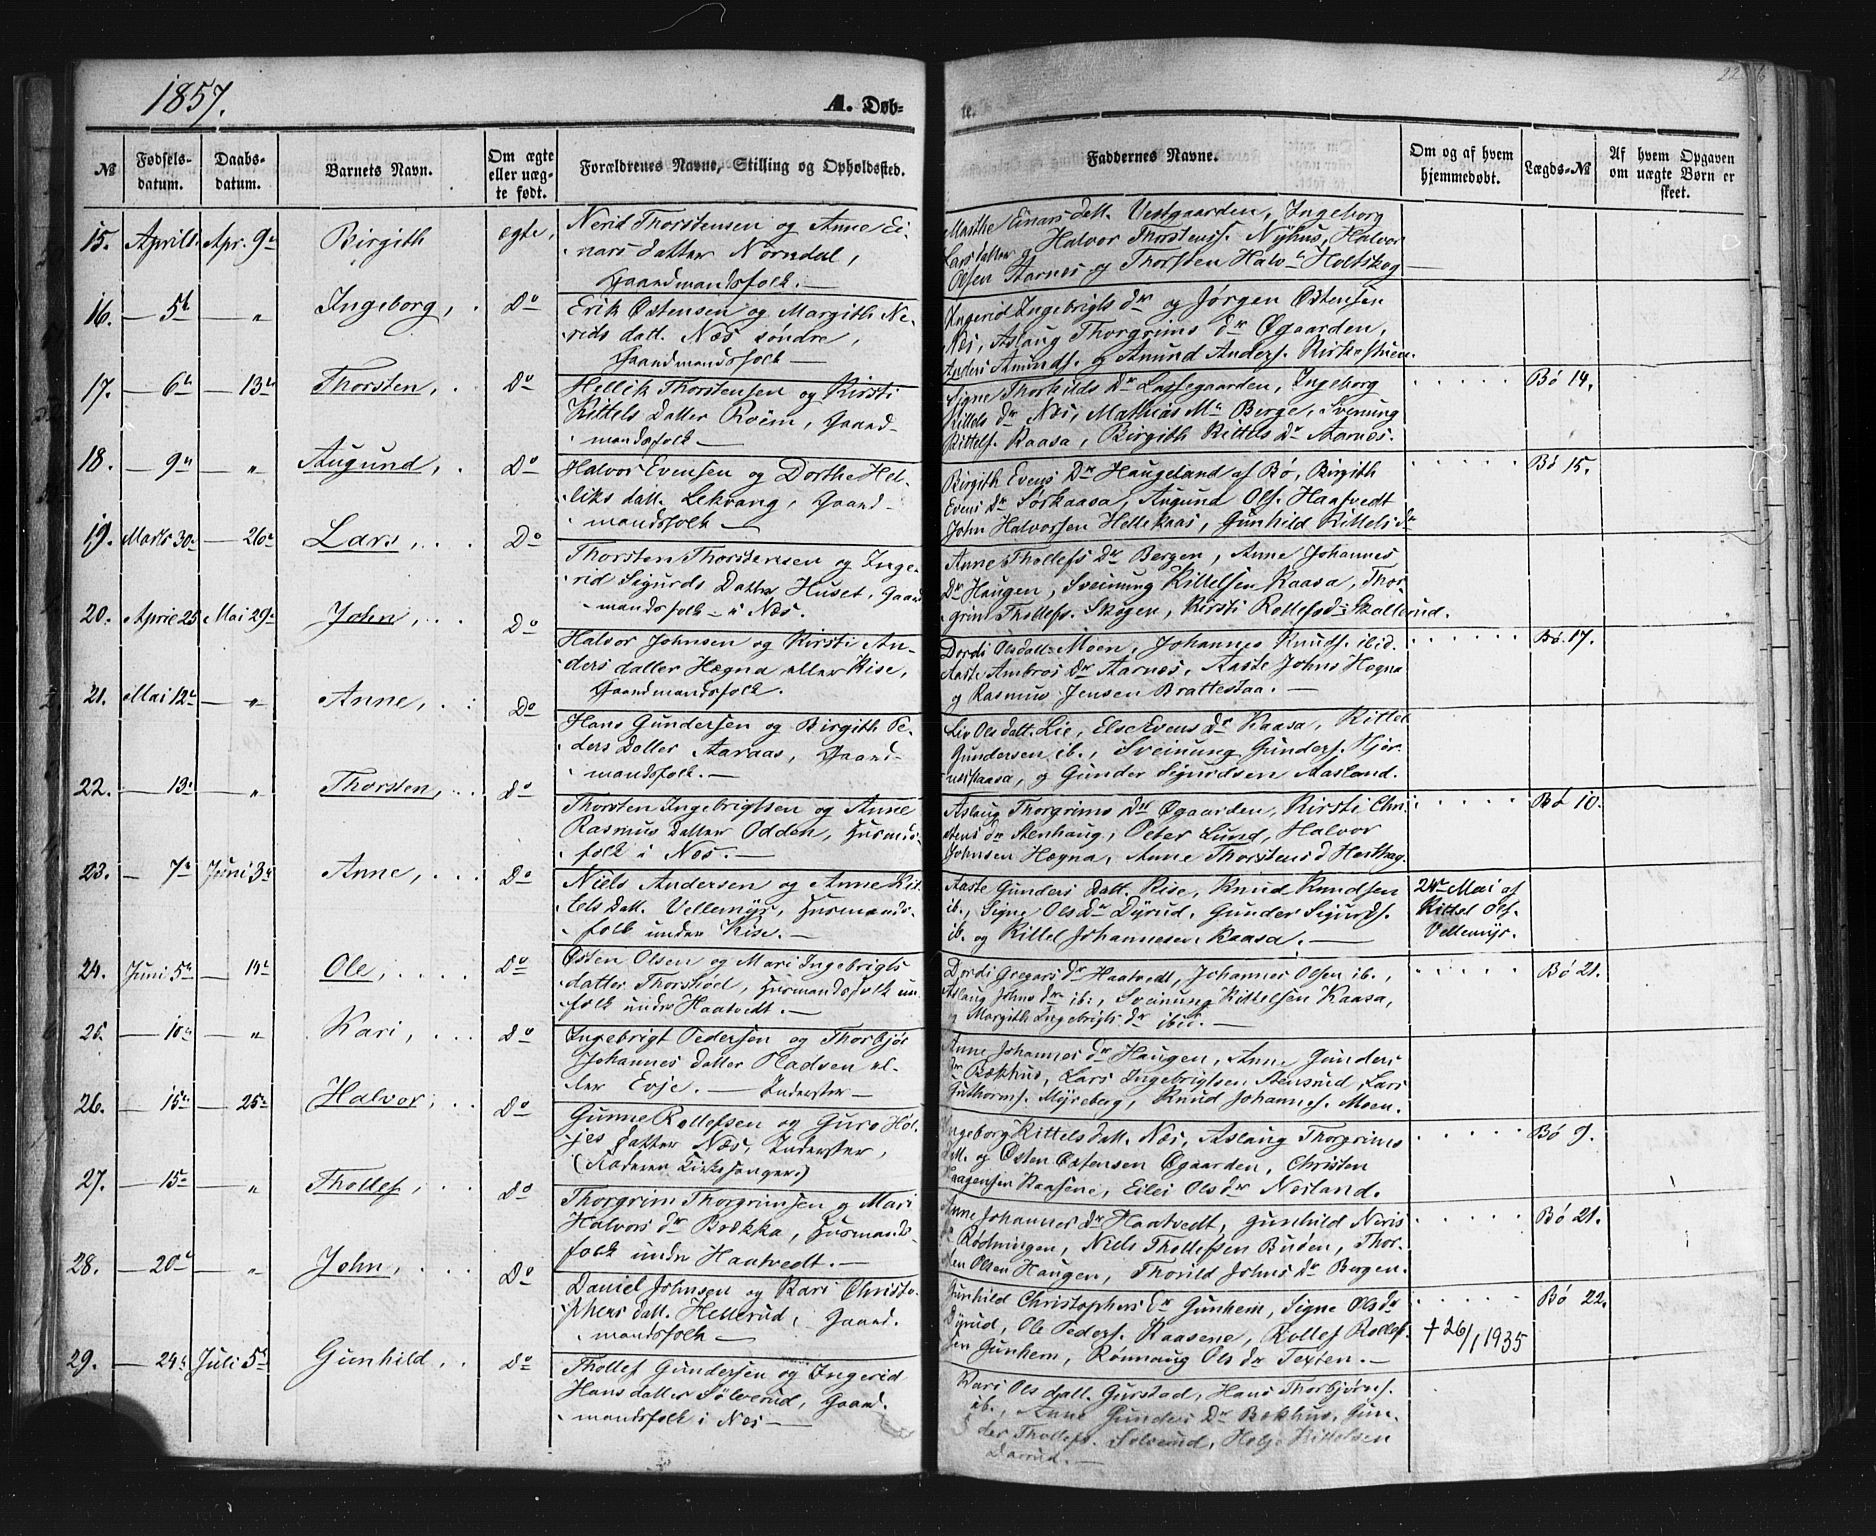 1857.
A. Døb-
te.
22
№
Fødsels-
datum.
Daabs-
datum.
Barnets Navn.
Om ægte
eller uæg-
te født.
Forældrenes Navne, Stilling og Opholdssted.
Faddernes Navne.
Om og af hvem
hjemmedøbt.
Lægds-№
Af hvem Opgaven
om uægte Børn er
skeet.
15. Apr. 9de Birgith ægte,
Nerid Thorstensen og Anne Ei-
nars datter Norndal,
Gaardmandsfolk. —
Marthe Einars datt. Vestgaarden, Ingeborg
Lars datter Halvor Thorstenss. Nyhus, Halvor
Olsen Aarnes og Thorsten Halv. Holtskog
16. — 5te — „ Ingeborg, Do
Erik Østensen og Margith Ne-
rids datt. Næs søndre,
Gaardmandsfolk —
Ingerid Ingebrigts dr og Jørgen Østensen
Næs, Aslaug Thorgrims dr Øgaarden,
Anders Amunds. og Amund Anders. Kirkestuen.
17. — 6te — 13de Thorsten, Do
Hellik Thorstensen og Kirsti
Kittels datter Roem, Gaard-
mandsfolk —
Signe Thorkilds Dr Lassegaarden, Ingeborg
Kittels dr Næs, Mathias Berge, Svenung
Kittels. Kaasa, Birgith Kittels Dr Aarnes.
Bø 14.
18. — 9de — „ Augund, Do
Halvor Evensen og Dorthe Hel-
liks datt. Lekvang, Gaard-
mandsfolk —
Birgith Evens Dr Haugeland af Bø, Birgith
Evens Dr Sørkaasa, Augund Ols. Haatvedt
John Halvorsen Hellekaas, Gunhild Kittels dr
Bø 15.
19. Marts 30te — 26de Lars, Do
Thorsten Thorstensen og Inge-
rid Sigurds Datter Huset, Gaard
mandsfolk i Næs.
Anne Thollefs Dr Bergen, Anne Johannes
Dr Haugen, Sveinung Kittelsen Kaasa, Thor-
grim Thollefs. Skogen, Kirsti Rollefs d. Skallerud.
20. April 25 Mai 29de John, Do
Halvor Johnsen og Kirsti An-
ders datter Hægna eller Kise,
Gaardmandsfolk.
Dordi Olsdatt. Moen, Johannes Knuds. ibid.
Aaste Ambros Dr Aarnes, Aaste Johns Hægna
og Rasmus Jensen Brattestaa. —
Bø 17.
21. Mai 12te — „ Anne, Do
Hans Gundersen og Birgith Pe-
ders Datter Aaraas, Gaard-
mandsfolk. —
Liv Ols datt. Lie, Else Evens Dr Kaasa, Kittel
Gundersen ib., Sveinung Gunders. Hjør-
neskaasa, og Gunder Sigurdsen Aasland.
22. — 13de — „ Thorsten, Do
Thorsten Ingebrigtsen og Anne
Rasmus datter Odden, Husmands-
folk i Næs. —
Aslaug Thorgrims Dr Øgaarden, Kirsti Chri-
stens Dr Stenhaug, Peter Lund, Halvor
Johnsen Hægna, Anne Thorstens d
Bø 10.
23. — 7de Juni 3de Anne, Do
Niels Andersen og Anne Kit-
tels Datt. Vellemyr, Husmands-
folk under Kise. —
Aaste Gunders Datt. Kise, Knud Knudsen
ib., Signe Ols Dr Dyrud, Gunder Sigurds.
ib. og Kittel Johannesen Kaasa. —
24de Mai af
Kittel Ols.
Vellemyr.
24. Juni 5te — 14de Ole, Do
Østen Olsen og Mari Ingebrigts
datter Thorshoel, Husmandsfolk un
folk under Haatvedt. —
Dordi Gregars Dr Haatvedt, Johannes Olsen ib.,
Aslaug Johns dr ib:, Sveinung Kittelsen Kaasa,
og Margith Ingebrigts dr ibid. —
Bø 21.
25. — 10de — „ Kari, Do
Ingebrigt Pedersen og Thorbjør
Johannes datter Pladsen el-
ler Evje. — Inderster —
Anne Johannes dr Haugen, Anne Gunders
dr Bækhus, Lars Ingebrigtsen Stensrud, Lars
Guthorms. Myreberg, Knud Johannes. Moen.
26. — 15de — 25de Halvor, Do
Gunne Rollefsen og Guro Hol-
jes datter Næs, Inderster,
Ingeborg Kittels datt. Næs, Aslaug Thorgrims
datt. og Østen Østensen Øgaarden, Christen
Haagensen Kaasene, Eilei Ols dr Næsland.
Bø 9.
27. — 15de — „ Thollef, Do
Thorgrim Thorgrimsen og Mari
Halvors dr Brækka, Husmands-
folk under Haatvedt. —
Anne Johannes Dr Haatvedt, Gunhild Neris
dr Rødningen, Niels Thollefsen Buøen, Thor-
sten Olsen Haugen, Thorild Johns Dr Bergen.
Bø 21.
28. — 20de — „ John, Do
Daniel Johnsen og Kari Christo-
phers datt. Hellerud, Gaard-
mandsfolk —
Gunhild Christophers Dr Gunhem, Signe Ols dr
Dyrud, Ole Peders. Kaasene, Rollef Rollef-
sen Gunhem, Rønnaug Ols dr Texien. —
† 26/1 1935
Bø 22.
29. — 24de Juli 5te Gunhild, Do
Thollef Gundersen og Ingerid
Hans datter Sølverud, Gaard-
mandsfolk i Næs —
Kari Ols datt. Gurstad, Hans Thorbjørns.
ib., Anne Gunders Dr Bækhus, Gun-
der Thollefs. Solverud, Helje Kittelsen